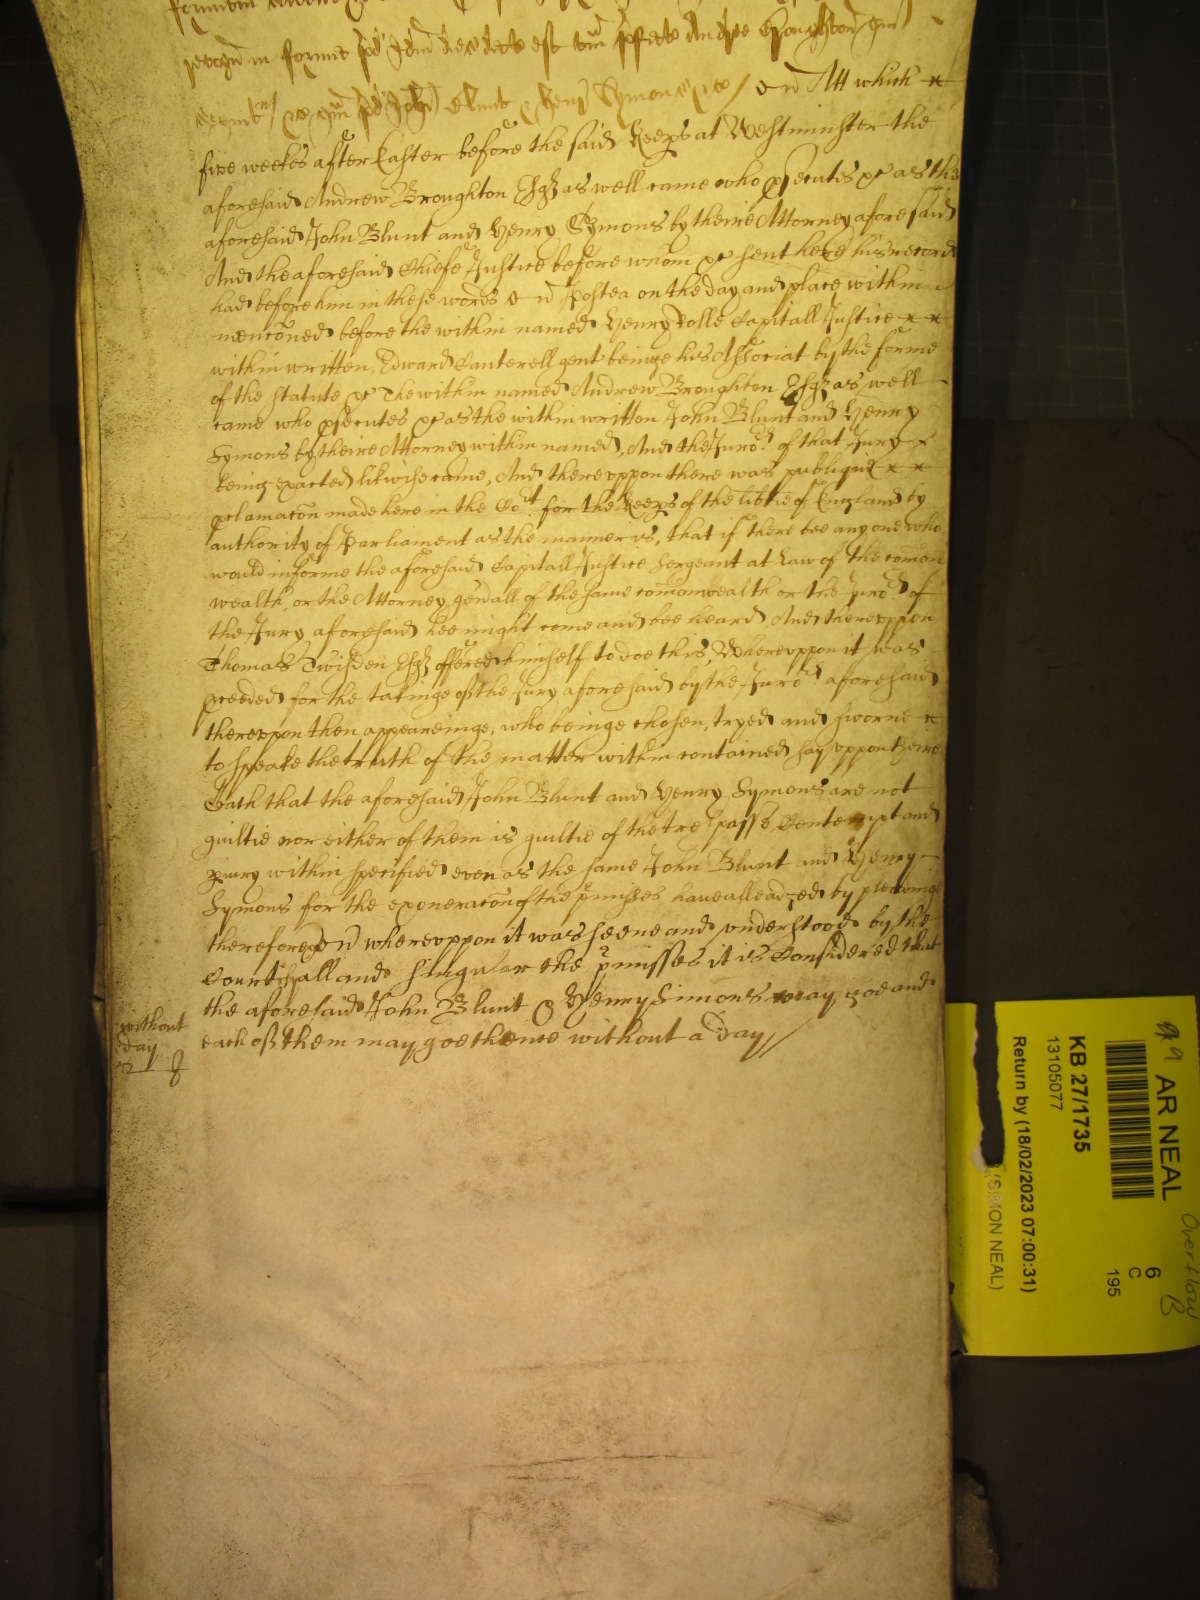 recogn in forma pd Idm dies datus est tam pfato Andree Broughton
qm pd Johi Blunt Henr Symons &c / &n Att which
five weekes after Easter before the said Keeps at Westminster the
aforesaid Andrew Broughton Esqz as well came who psecutes &c as the
aforesaid John Blunt and Henry Symons by theire Attorney aforesaid
And the aforesaid Chiefe Justice before whom &c sent here his record
had before him in these words & n Postea on the day and place within
mencōned before the within named Henry Rolle Capitall Justice
within written, Edward Canterell gent beinge his Associat by the forme
of the statute &c The within named Andrew Broughton Esqz as well
came who psecutes &c as the within written John Blunt and Henry
Symons by theire Attorney within named, And the Juro.rs of that Jury
being exacted likwise came, And thereuppon there was publique
pclamacōn made here in the Co.rt for the Keeps of the libtie of England by
authority of Parliament as the manner is, that if there bee any one who
would informe the aforesaid Capitall Justice Sergeant at Law of the comon
wealth, or the Attorney genall of the same comonwealth or the Juro.rs of
the Jury aforesaid hee might come and bee heard And thereuppon
Thomas Twisden Esqz offered himself to doe this, Whereuppon it was
pceeded for the takinge of the Jury aforesaid by the Juro.rs aforesaid
thereuppon then appeareinge, who beinge chosen, tryed and sworne
to speake the truth of the matter within contained say uppon theire
Oath that the aforesaid John Blunt and Henry Symons are not
guiltie nor either of them is guiltie of the trespasse, Contempt and
piury within specified even as the same John Blunt and Henry
Symons for the exoneracōn of the pmisses have alleadged by pleadinge
therefore & n whereuppon it was seene and understood by the
Court all and singular the pmisses it is Considered that
the aforesaid John Blunt & Henry Simons may goe and
each of them may goe thence without a Day //
without
day
AR NEAL
KB 27/1735
13105077
Return by (18/02/2023 07:00:31)
(SIMON NEAL)
6
C
195
Overflow
B